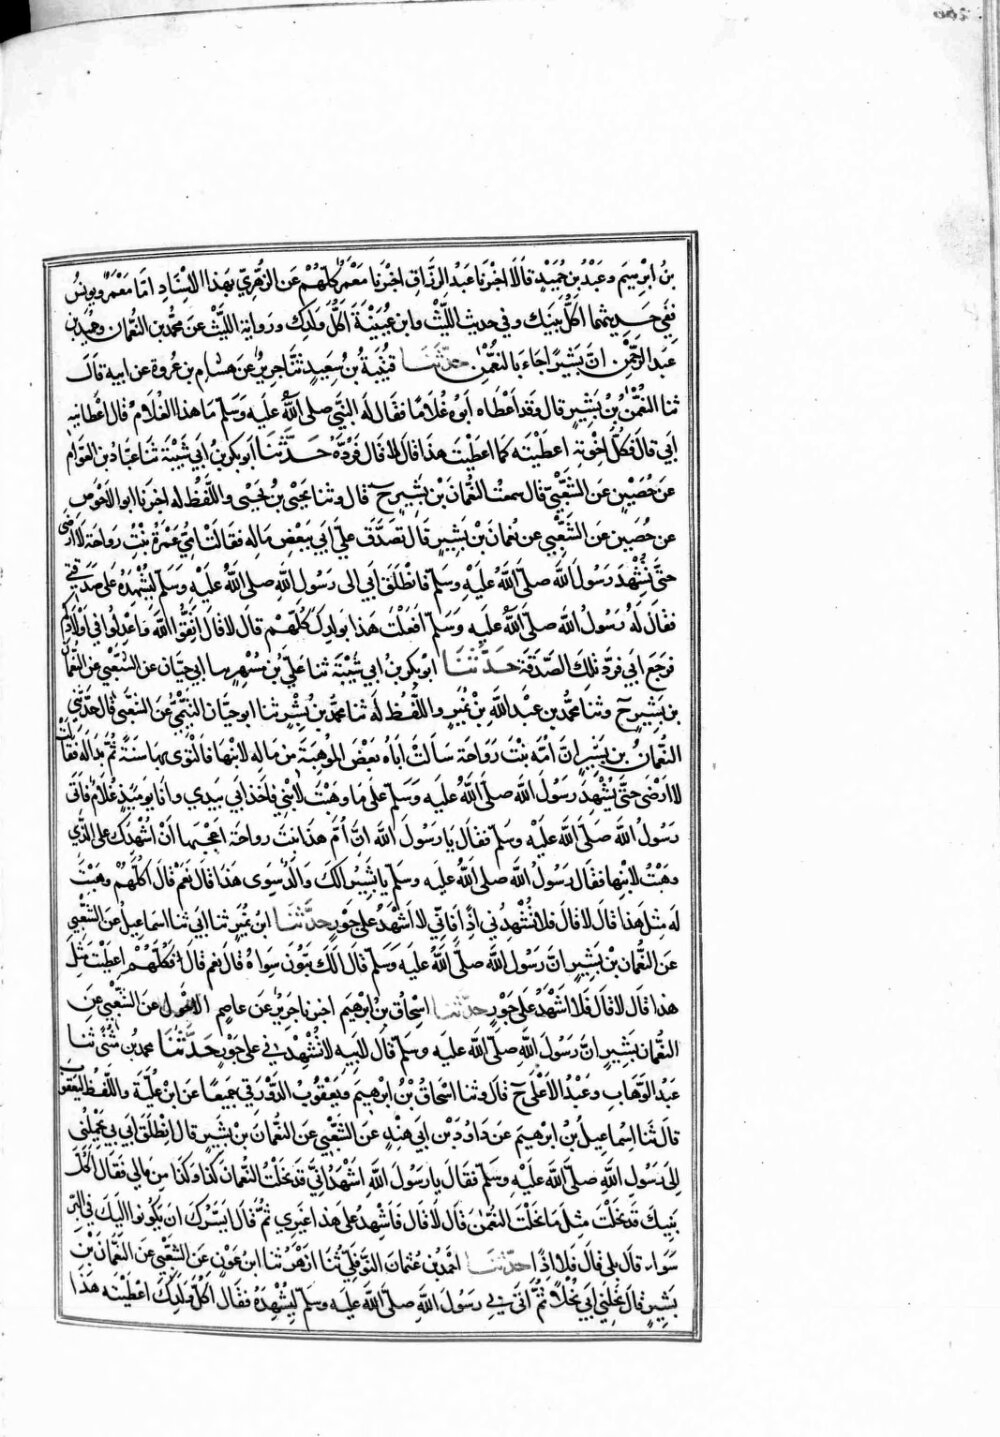 بنُ ابرهيم وعَبْدُ بن حُمَيْدٍ قالَا اخبرنا عَبدُ الرزّاقِ اخبرنا مَعْمَرٌ كلّهُمْ عَن الزُّهريِّ بهذا الاِسْنَادِ امّا مَعْمَرٌ ويونسُ
ففي حَديثهما اَكُلَّ بَنيك وفي حديث اللّيْث وابن عُيَيْنَة اَكُلَّ وَلَدِك ورواية اللّيْثِ عَن محمّد بن النعمان وحُمَيد بن
عَبد الرّحمٰن انّ بَشيرًا جَاءَ بالنعْمٰن حدّثَنَا قُتَيْبَةُ بنُ سَعِيدٍ ثنَا جريرٌ عَن هشام بن عُروة عن ابيه قال
ثنا النُّعْمٰنُ بنُ بَشيرٍ قال وَقَد اَعْطَاه اَبُوهُ غُلَامًا فقال لَه النّبي صلى الله عليه وسَلّم ما هذا الغلَامُ قال اَعْطَانيه
اَبي قالَ فكُلَّ اِخْوتِه اعطَيْتَه كما اعطَيْتَ هذا قال لا قال فَرُدَّهُ حَدَّثَنَا ابو بكر بن اَبي شَيْبَة ثنا عبّاد بن العَوّام
عَن حُصَيْنٍ عَن الشَّعْبِي قال سمعتُ النُّعْمانَ بْنَ بَشيرٍ ح قال وثنا يَحْيَى بنُ يَحيى واللّفظُ له اخبرنا ابو الاَحْوَصِ
عن حُصَينٍ عَن الشَّعْبِي عن نُعمانَ بْنِ بَشِيرٍ قَال تَصَدَّقَ عَليَّ اَبي بِبَعْضِ مَالِه فقَالَتْ اُمّي عَمْرَةُ بنْتُ رواحَةَ لا اَرْضى
حتّى تُشْهِدَ رَسُولَ اللهَ صلّى اللهُ عليْهِ وسَلّم فانطَلَقَ اَبي الى رَسُولِ اللهِ صلى اللهُ عليْهِ وسَلّم لِيُشْهِدَهُ على صَدَقتي
فقال لَهُ رَسُولُ الله صلّى اللهُ عليهِ وسَلّم افَعَلْتَ هذا بولدِك كُلِّهِمْ قال لا قال اتّقُوا اللّهَ واعْدِلُوا في اَوْلَادِكُم
فرجَعَ ابي فردَّ تلِكَ الصّدَقةَ حَدَّثَنَا ابو بكر بنُ ابي شَيْبَة ثنا عَليُّ بن مُسْهِرٍ عن ابي حيّان عن الشّعْبي عن النعمان
بن بَشيرٍ ح وثنا محمّد بن عَبْد اللّه بْنِ نُمَيرٍ واللّفظ له ثنا محمّد بن بِشْرٍ ثنا ابو حيّان التيْميُّ عن الشعبي قال حدّثني
النّعْمانُ بن بشيرٍ انّ اُمّه بِنْتَ رَوَاحَة سَاَلتْ اَبَاه بَعْضَ المَوْهِبَةِ من مَالِه لابنها فالْتَوى بها سَنَةً ثُمّ بَدا لَه فقالت
لا ارضَى حتّى تُشْهِدَ رَسُولَ اللّه صَلّى اللهُ عليه وَسَلّم على ما وَهَبْتَ لاِبْني فاَخَذَ اَبي بيدي وانا يومَئِذٍ غُلامٌ فاَتى
رَسُولَ اللهِ صَلّى اللّه عليْه وسَلّم فقال يا رَسُولَ الله انّ اُمَّ هذا بنتَ رواحة اعجَبها اَنْ اُشْهِدَك على الّذي
وهَبْتُ لابنها فقال رَسُولُ الله صلّى اللّهُ عليه وسَلّم يا بَشِيرُ الَكَ وَلَدٌ سِوى هذا قال نَعَمْ قال اَكُلَّهُمْ وهَبْتَ
لَه مِثلَ هذا قالَ لا قال فلا تُشْهِدْني اذًا فانّي لا اَشْهَدُ على جَوْرٍ حدّثنَا ابن نُمَيرٍ ثنا ابي ثنا اسمَاعيلُ عَن الشّعْبي
عَن النُّعْمان بْن بَشيرٍ انّ رَسُولَ اللهِ صلّى اللّهُ عليه وَسَلّم قالَ اَلَكَ بَنُونَ سِوَاهُ قالَ نعم قال فَكُلَّهُمْ اعطَيْتَ مثلَ
هذا قال لا قال فَلا اَشْهَدُ على جَوْرٍ حدّثنا اِسْحاقُ بنُ ابرهيم اخبرنا جريرٌ عَن عاصِم الاحْوَل عن الشَّعْبي عن
النّعمان بَشيرٍ انّ رَسُولَ الله صلّى الله عليه وسَلّم قال لابيه لا تُشْهِدْني على جَورٍ حَدَّثَنَا محمد بن مُثَنّى ثنا
عَبدُ الوَهّاب وعَبْدُ الاَعْلى ح قال وثنا اسْحاقُ بْنُ ابرهيم ويعقُوبُ الدَّوْرَقي جميعًا عن ابْن عُلَيَّة واللّفظ ليعقوب
قال ثنا اِسماعيلُ بنُ ابرهيمَ عَن دَاودَ بْن اَبي هندٍ عَن الشّعْبي عن النّعمان بن بَشيرٍ قال انطلَقَ بي اَبي يحمِلُني
اِلى رَسُولِ الله صلّى اللّه عليْه وسَلّم فقال يا رسُولَ اللّه اشهَدْ انّي قد نحَلْتُ النُّعمانَ كذا وكذا مِنْ مالي فقال اكُلَّ
بَنيكَ قدْ نَحَلْتَ مثلَ ما نَحَلتَ النعْمٰنَ قال لا قال فاَشْهِدْ على هذا غيرِي ثُمَّ قالَ اَيَسُرُّكَ ان يكُونُوا اليكَ في البِرّ
سَوَاءً قال بلى قال فلا اذًا حدّثنا احْمَدُ بن عُثمان النَّوْفَلي ثنا اَزْهَرُ ثنا ابنُ عوْنٍ عن الشّعْبي عن النّعمان بْن
بَشيرٍ قال نَحَلني اَبي نُحْلًا ثُمّ اَتى بي رَسُولَ الله صلّى الله عليه وسلّم لِيُشْهِدَهُ فقال اَكُلَّ وَلَدِكَ اعْطَيْتَه هَذا